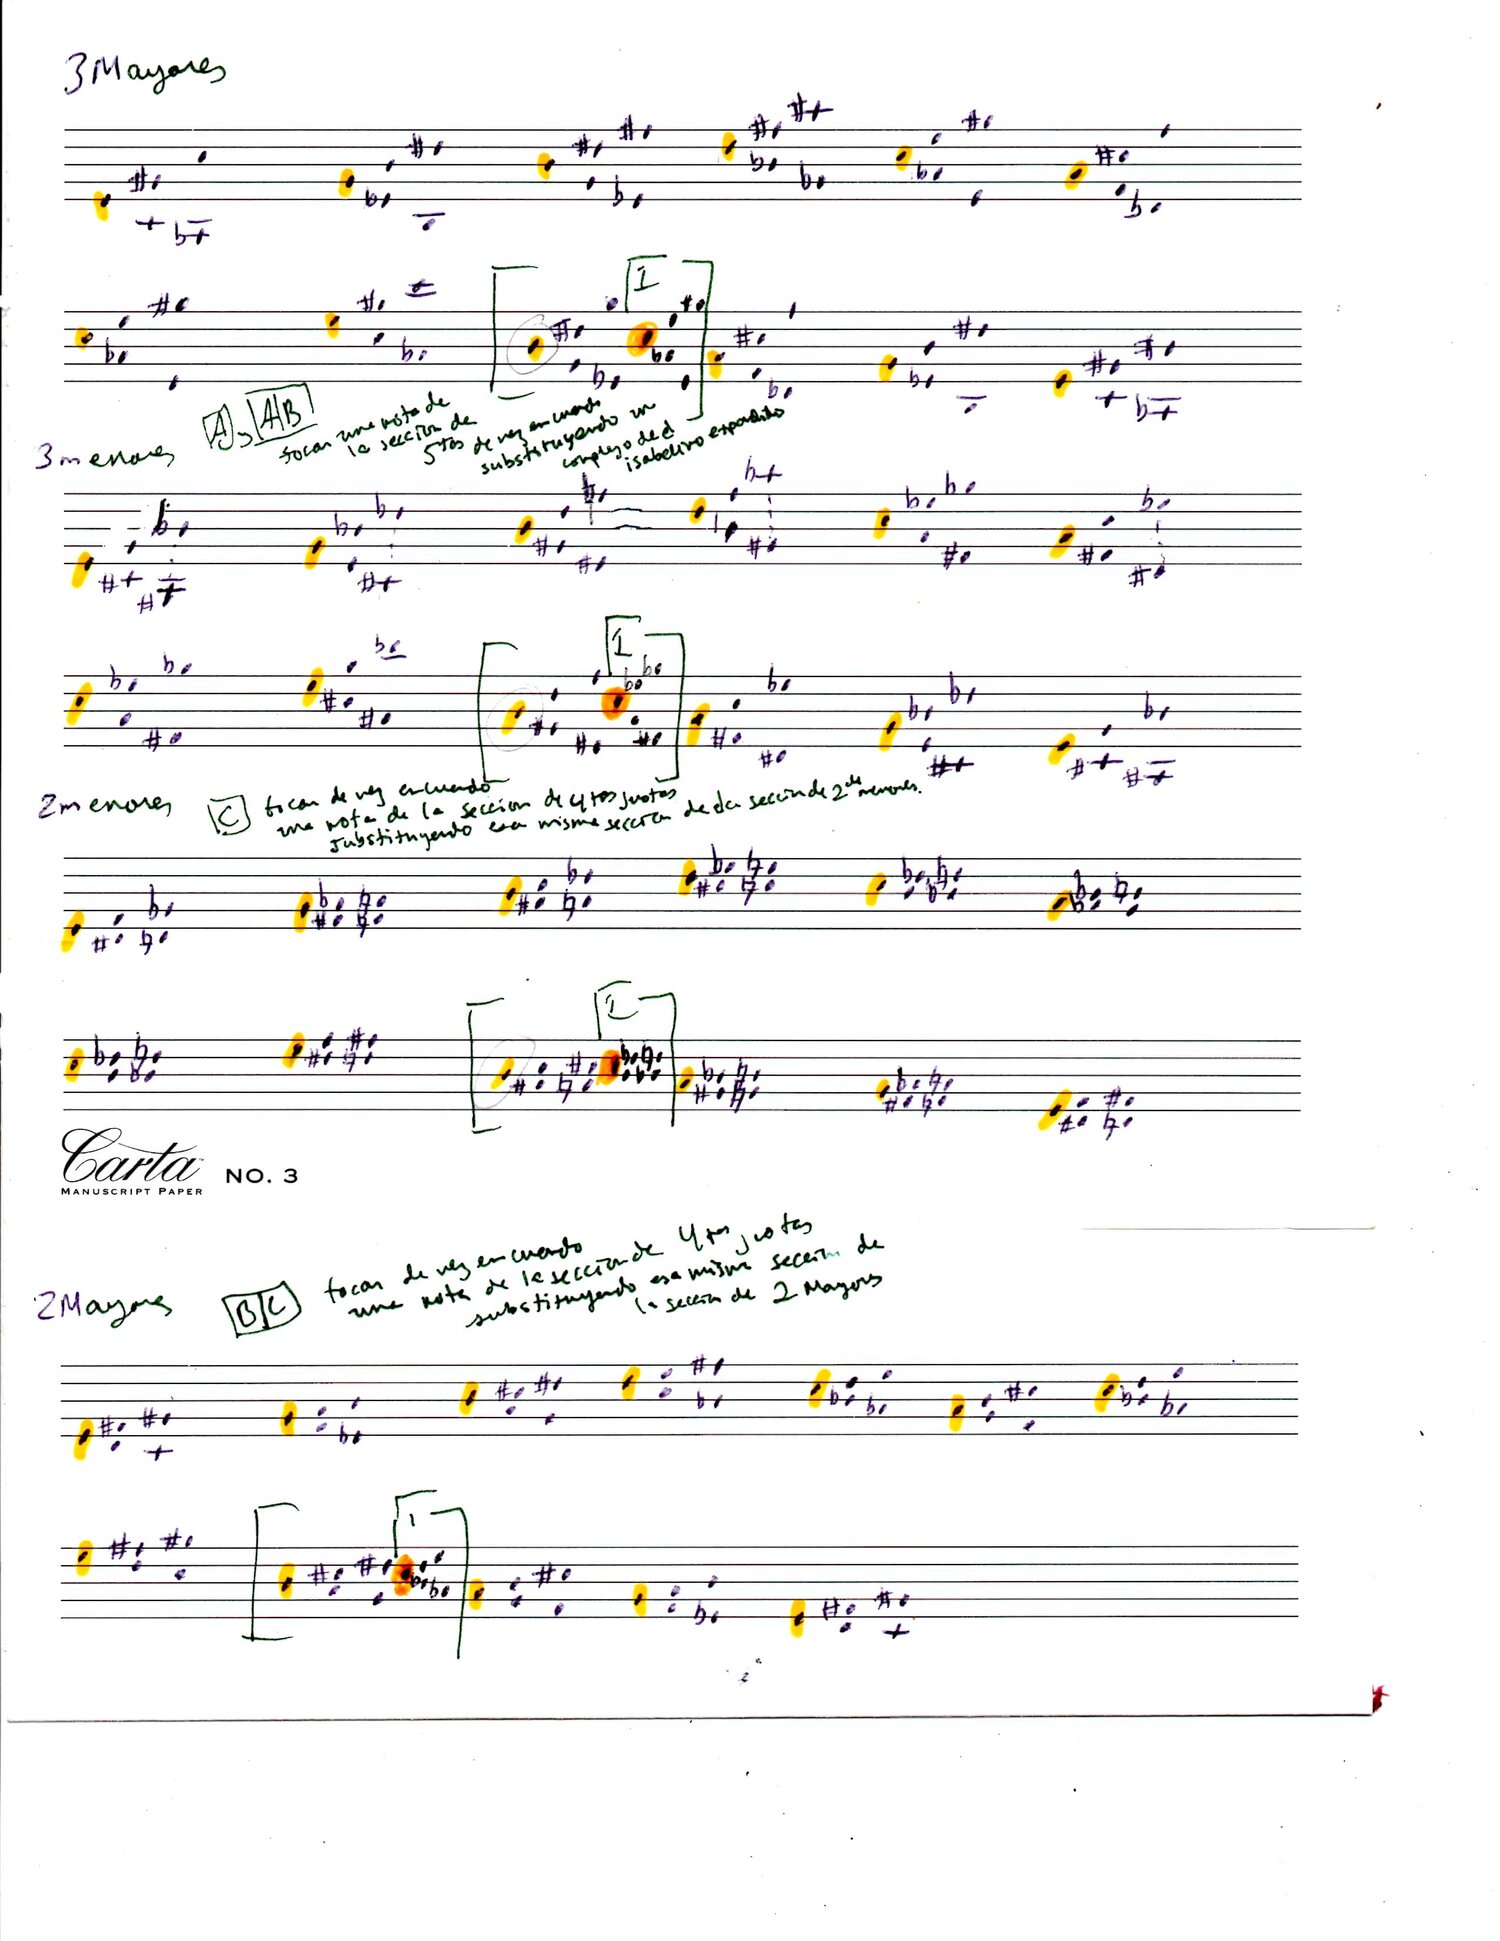 3 Mayores
I
A y A|B
tocar una nota de
la sección de
5tas de vez en cuando
substituyendo un
complejo de
isabelino expandido
3 menores
I
2 menores
C
tocar de vez en cuando
una nota de la sección de 4tas justas
substituyendo esa misma sección de la sección de 2das menores.
I
Carta
MANUSCRIPT PAPER NO. 3
2 Mayores
B|C
tocar de vez en cuando
una nota de la sección de 4tas justas
substituyendo esa misma sección de
la sección de 2 Mayores
I